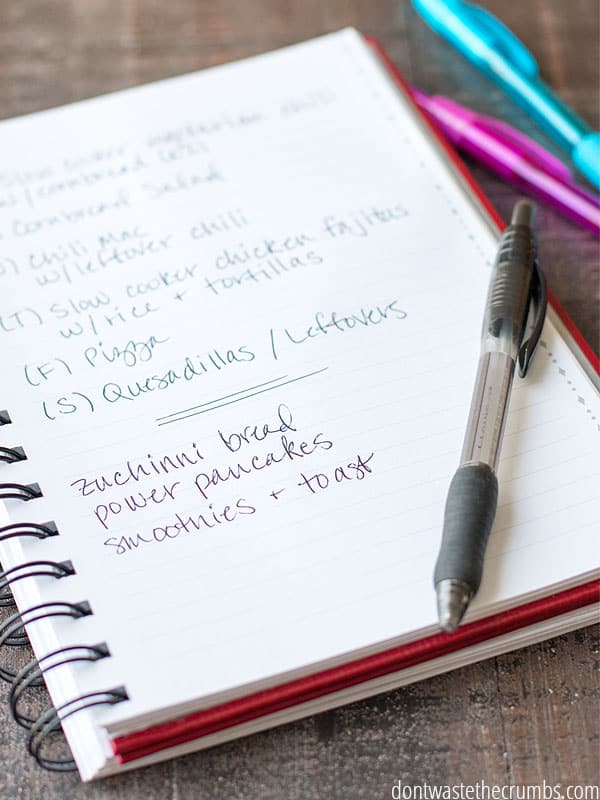 slow cooker vegetarian chili
w/cornbread
cornbread salad
) chili mac
w/leftover chili
(T) slow cooker chicken fajitas
w/rice + tortillas
(F) Pizza
(S) Quesadillas / Leftovers
zuchinni bread
power pancakes
smoothies + toast
dontwastethecrumbs.com